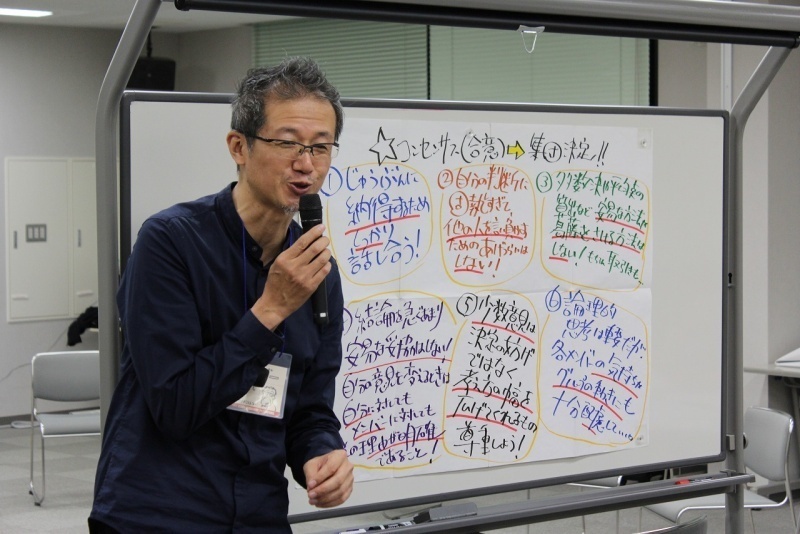 ☆コンセンサス(合意)➡集団決定!!
①じゅうぶんに
納得するため
しっかり
話し合う!
②自分の判断に
固執しすぎて
他の人を言い負かす
ためのあげつらいは
しない!
③多数決や平均値の
算出など 安易な方法で
葛藤をさける方法は
しない!
結論を急ぐあまり
安易な妥協はしない!
自分の意見を変えるときは
自分に対しても
メンバーに対しても
の理由が明確
であること!
⑤少数意見は
決定の妨げ
ではなく
考え方の幅を
広げてくれるもの
尊重しよう!
⑥論理的
思考は大事だが
各メンバーの気持ちや
グループの動きにも
十分配慮して…